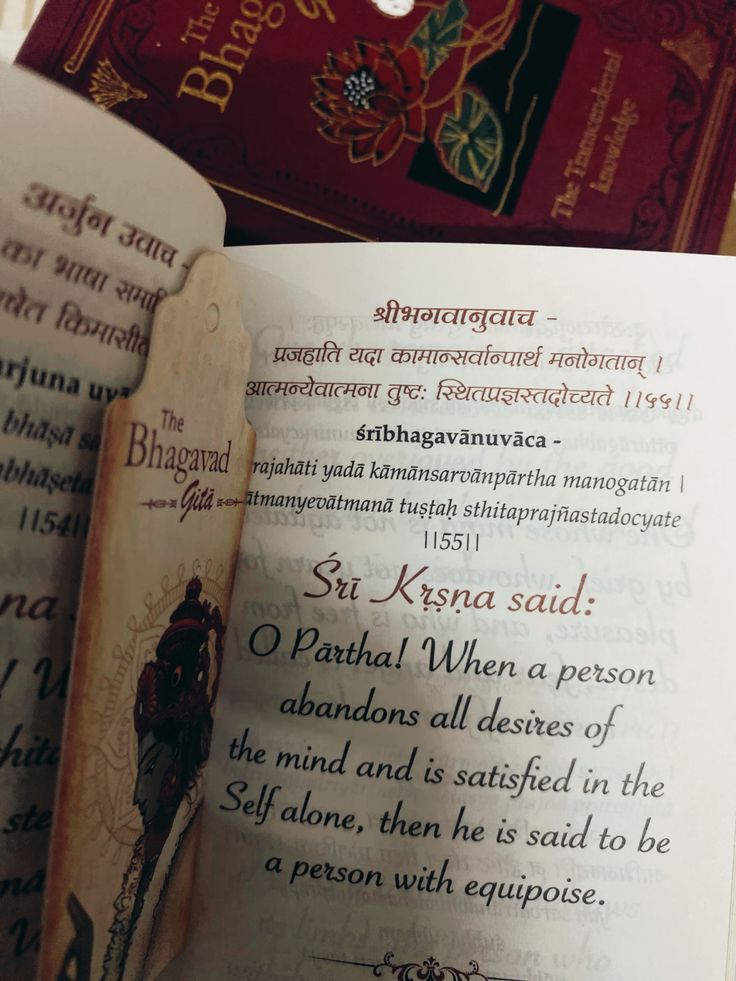 The
Bhaga
Gi
The Transcendental
knowledge
अर्जुन उवाच -
का भाषा
किमासीत
uvā
bhāṣā
||54||
na
The
Bhagavad
Gitā
श्रीभगवानुवाच -
प्रजहाति यदा कामान्सर्वान्पार्थ मनोगतान् ।
आत्मन्येवात्मना तुष्टः स्थितप्रज्ञस्तदोच्यते ।।५५।।
śrībhagavānuvāca -
rajahāti yadā kāmānsarvānpārtha manogatān |
ātmanyevātmanā tuṣṭaḥ sthitaprajñastadocyate
||55||
Śrī Kṛṣṇa said:
O Pārtha! When a person
abandons all desires of
the mind and is satisfied in the
Self alone, then he is said to be
a person with equipoise.